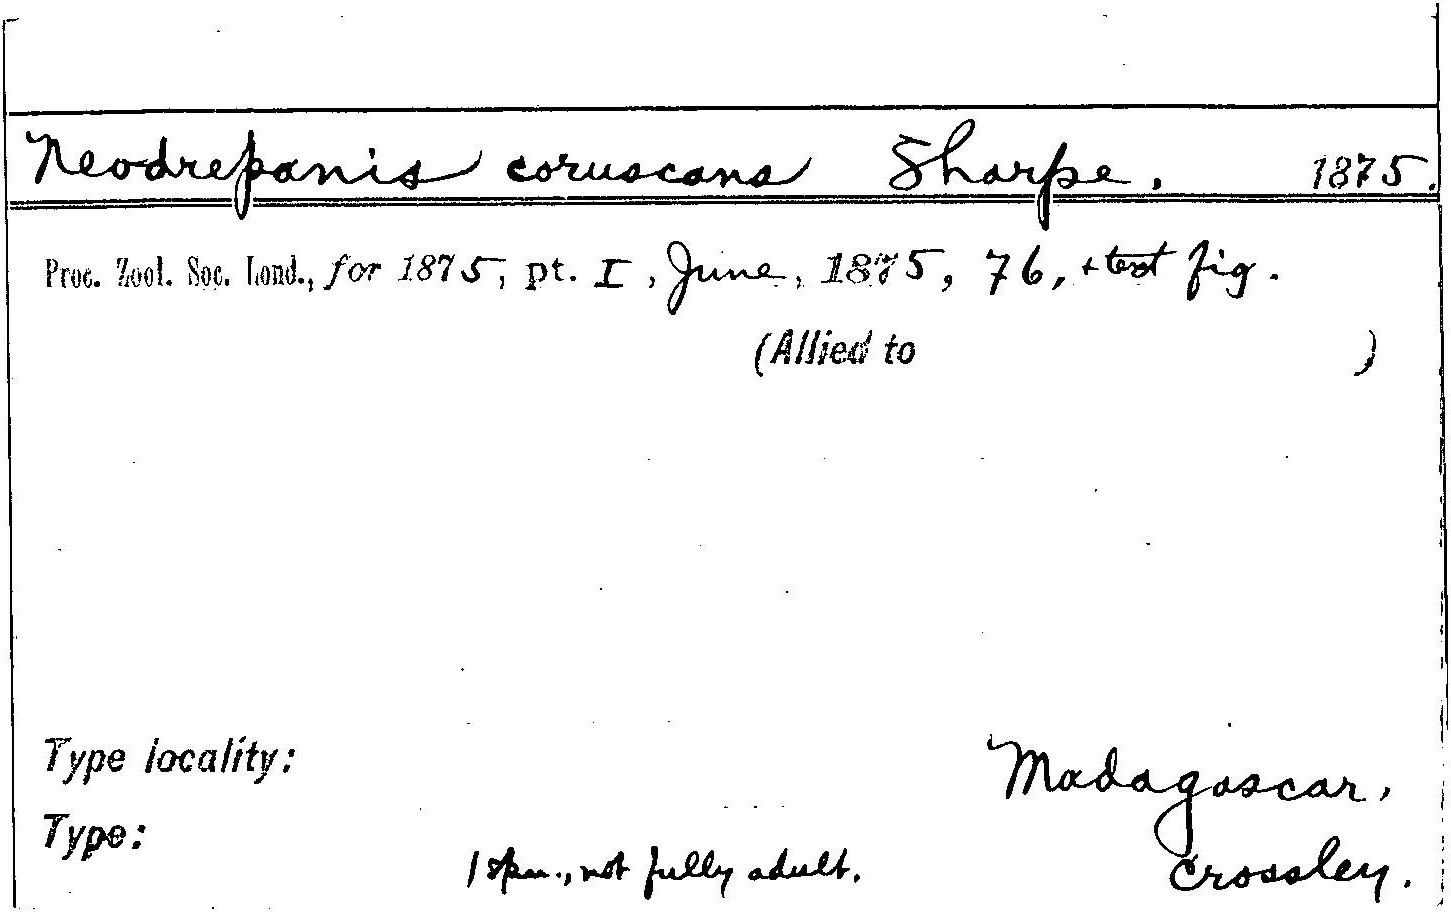 Neodrepanis coruscans Sharpe, 1875.
Proc. Zool. Soc. Lond., for 1875, pt. I, June, 1875, 76, + text fig.
(Allied to )
Type locality: Madagascar,
Type: Crossley.
1 spm., not fully adult.